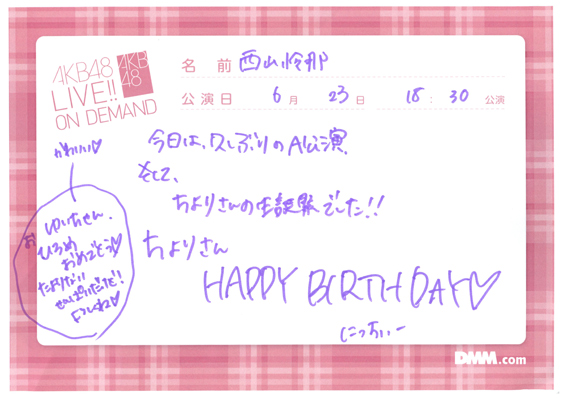 AKB48
LIVE!!
ON DEMAND
AKB
48
名 前 西山怜那
公演日 6 月 23 日 18 : 30 公演
今日は、久しぶりのA公演
そして、
ちよりさんの生誕祭でした!!
ちよりさん
HAPPY BIRTHDAY♡
にっちぃー
かわいい♡
ゆいちゃん、
おひろめ
おめでとう♡
DMM.com